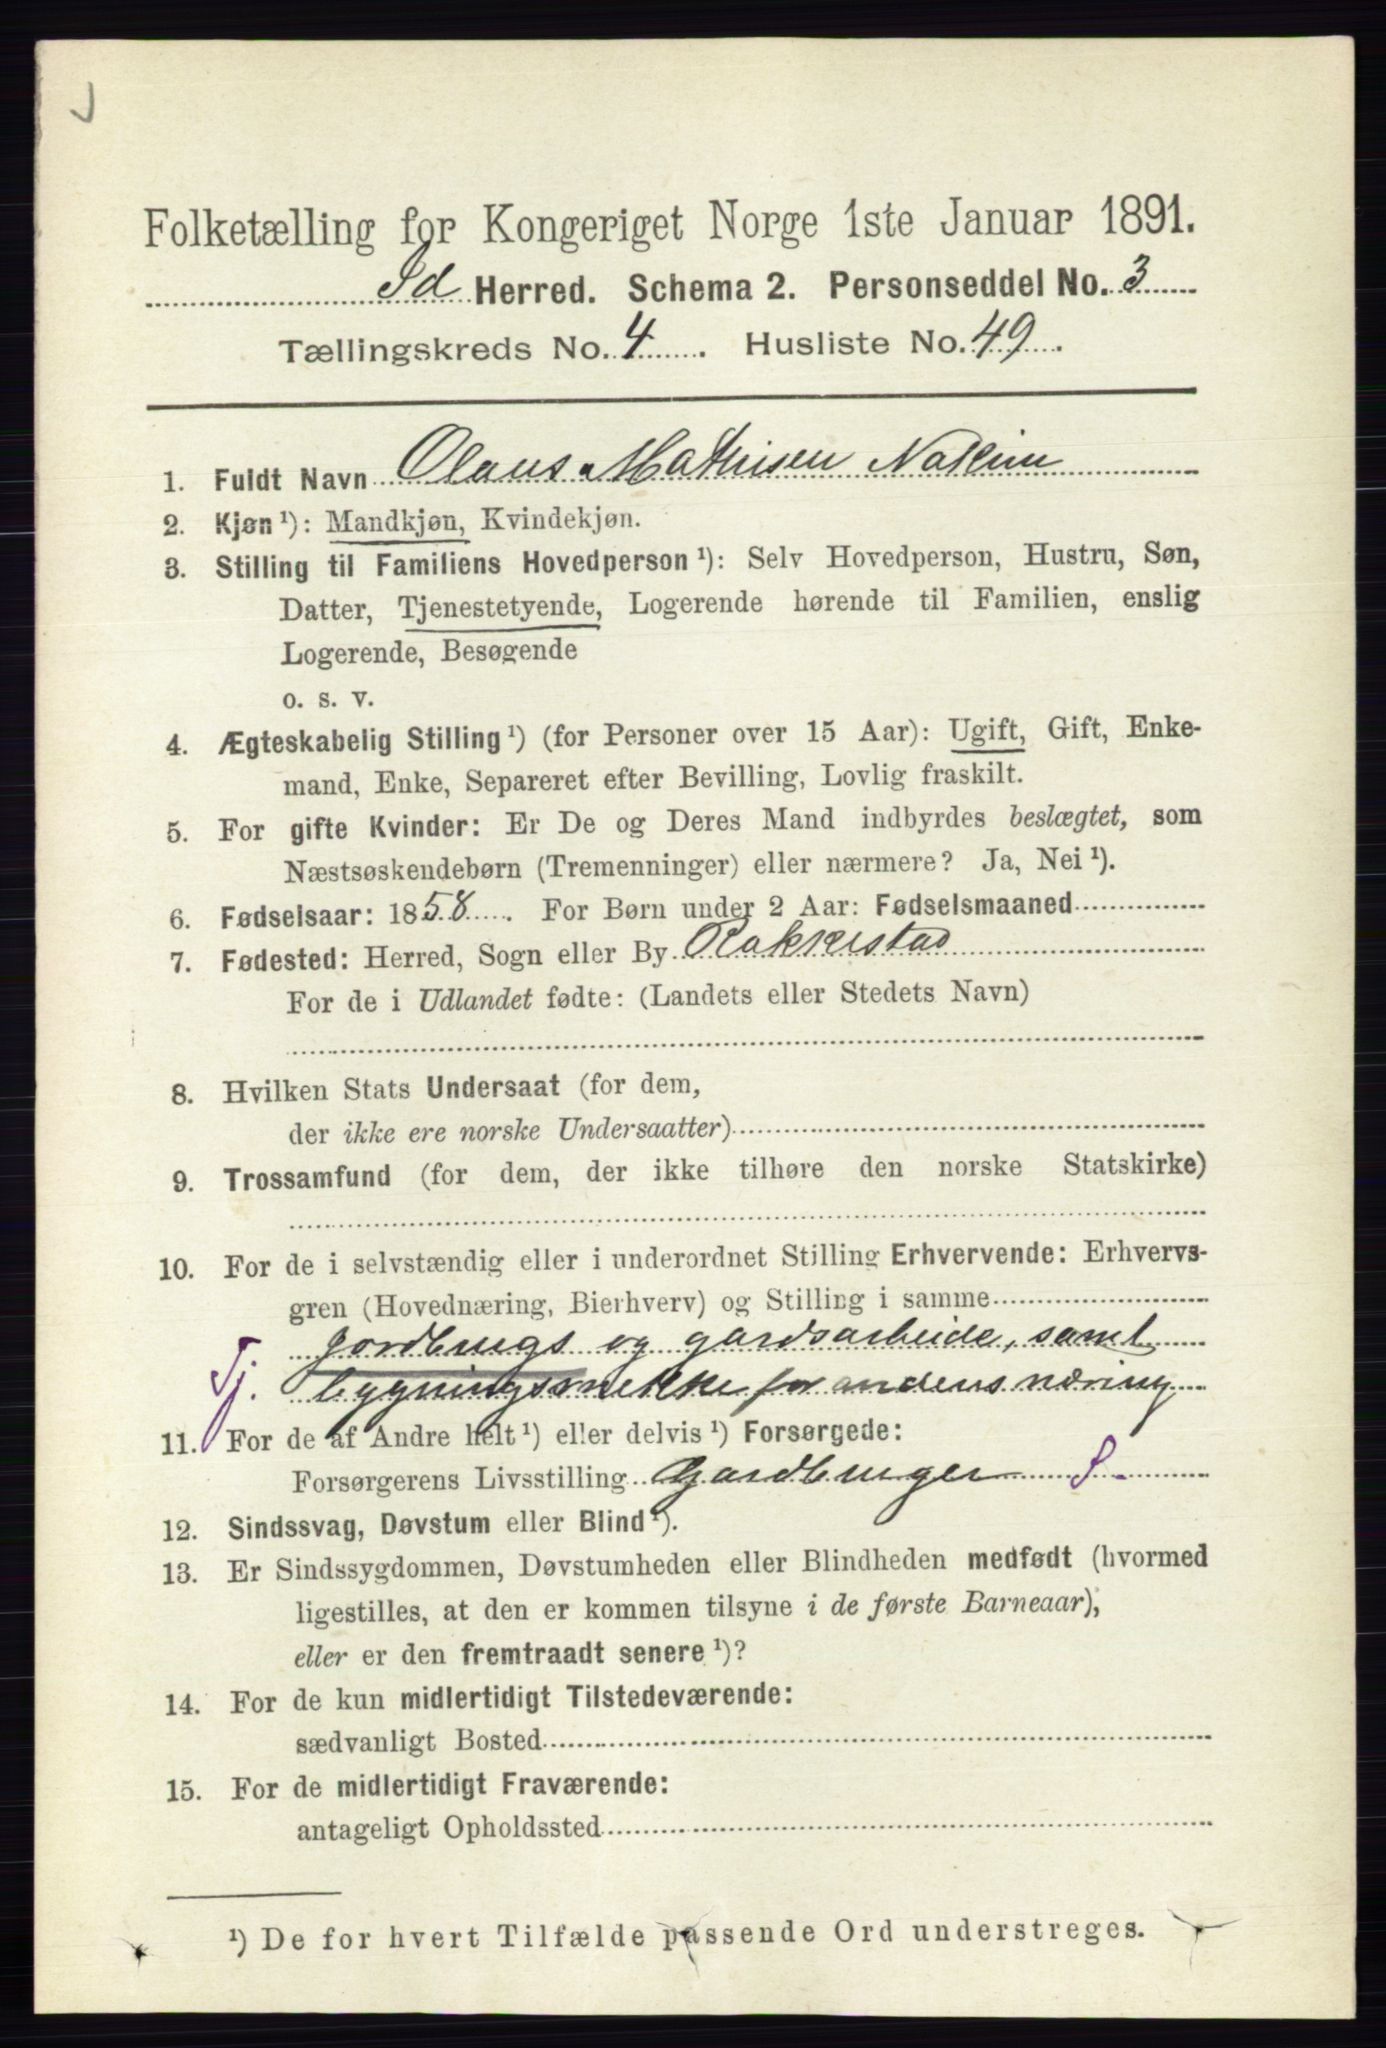 Folketælling for Kongeriget Norge 1ste Januar 1891.
Id Herred. Schema 2. Personseddel No. 3
Tællingskreds No. 4. Husliste No. 49.
1. Fuldt Navn Olaus Mathisen
2. Kjøn ¹): Mandkjøn, Kvindekjøn.
3. Stilling til Familiens Hovedperson ¹): Selv Hovedperson, Hustru, Søn,
Datter, Tjenestetyende, Logerende hørende til Familien, enslig
Logerende, Besøgende
o. s. v.
4. Ægteskabelig Stilling ¹) (for Personer over 15 Aar): Ugift, Gift, Enke-
mand, Enke, Separeret efter Bevilling, Lovlig fraskilt.
5. For gifte Kvinder: Er De og Deres Mand indbyrdes beslægtet, som
Næstsøskendebørn (Tremenninger) eller nærmere? Ja, Nei ¹).
6. Fødselsaar: 1858. For Børn under 2 Aar: Fødselsmaaned
7. Fødested: Herred, Sogn eller By Rakkestad
For de i Udlandet fødte: (Landets eller Stedets Navn)
8. Hvilken Stats Undersaat (for dem,
der ikke ere norske Undersaatter)
9. Trossamfund (for dem, der ikke tilhøre den norske Statskirke)
10. For de i selvstændig eller i underordnet Stilling Erhvervende: Erhvervs-
gren (Hovednæring, Bierhverv) og Stilling i samme
jordbrugs og gardsarbeide, samt
Tj. bygningssnekke for andens næring
11. For de af Andre helt ¹) eller delvis ¹) Forsørgede:
Forsørgerens Livsstilling Gardbruger S.
12. Sindssvag, Døvstum eller Blind ¹).
13. Er Sindssygdommen, Døvstumheden eller Blindheden medfødt (hvormed
ligestilles, at den er kommen tilsyne i de første Barneaar),
eller er den fremtraadt senere ¹)?
14. For de kun midlertidigt Tilstedeværende:
sædvanligt Bosted
15. For de midlertidigt Fraværende:
antageligt Opholdssted
¹) De for hvert Tilfælde passende Ord understreges.